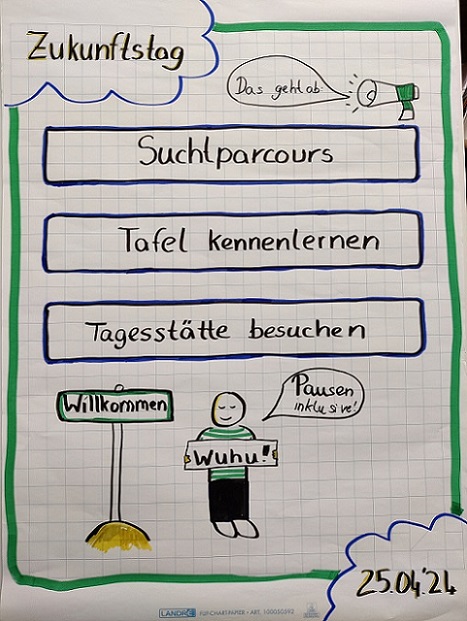 Zukunftstag
Das geht ab
Suchtparcours
Tafel kennenlernen
Tagesstätte besuchen
Willkommen
Pausen
inklusive!
Wuhu!
25.04.'24
LANDRÉ